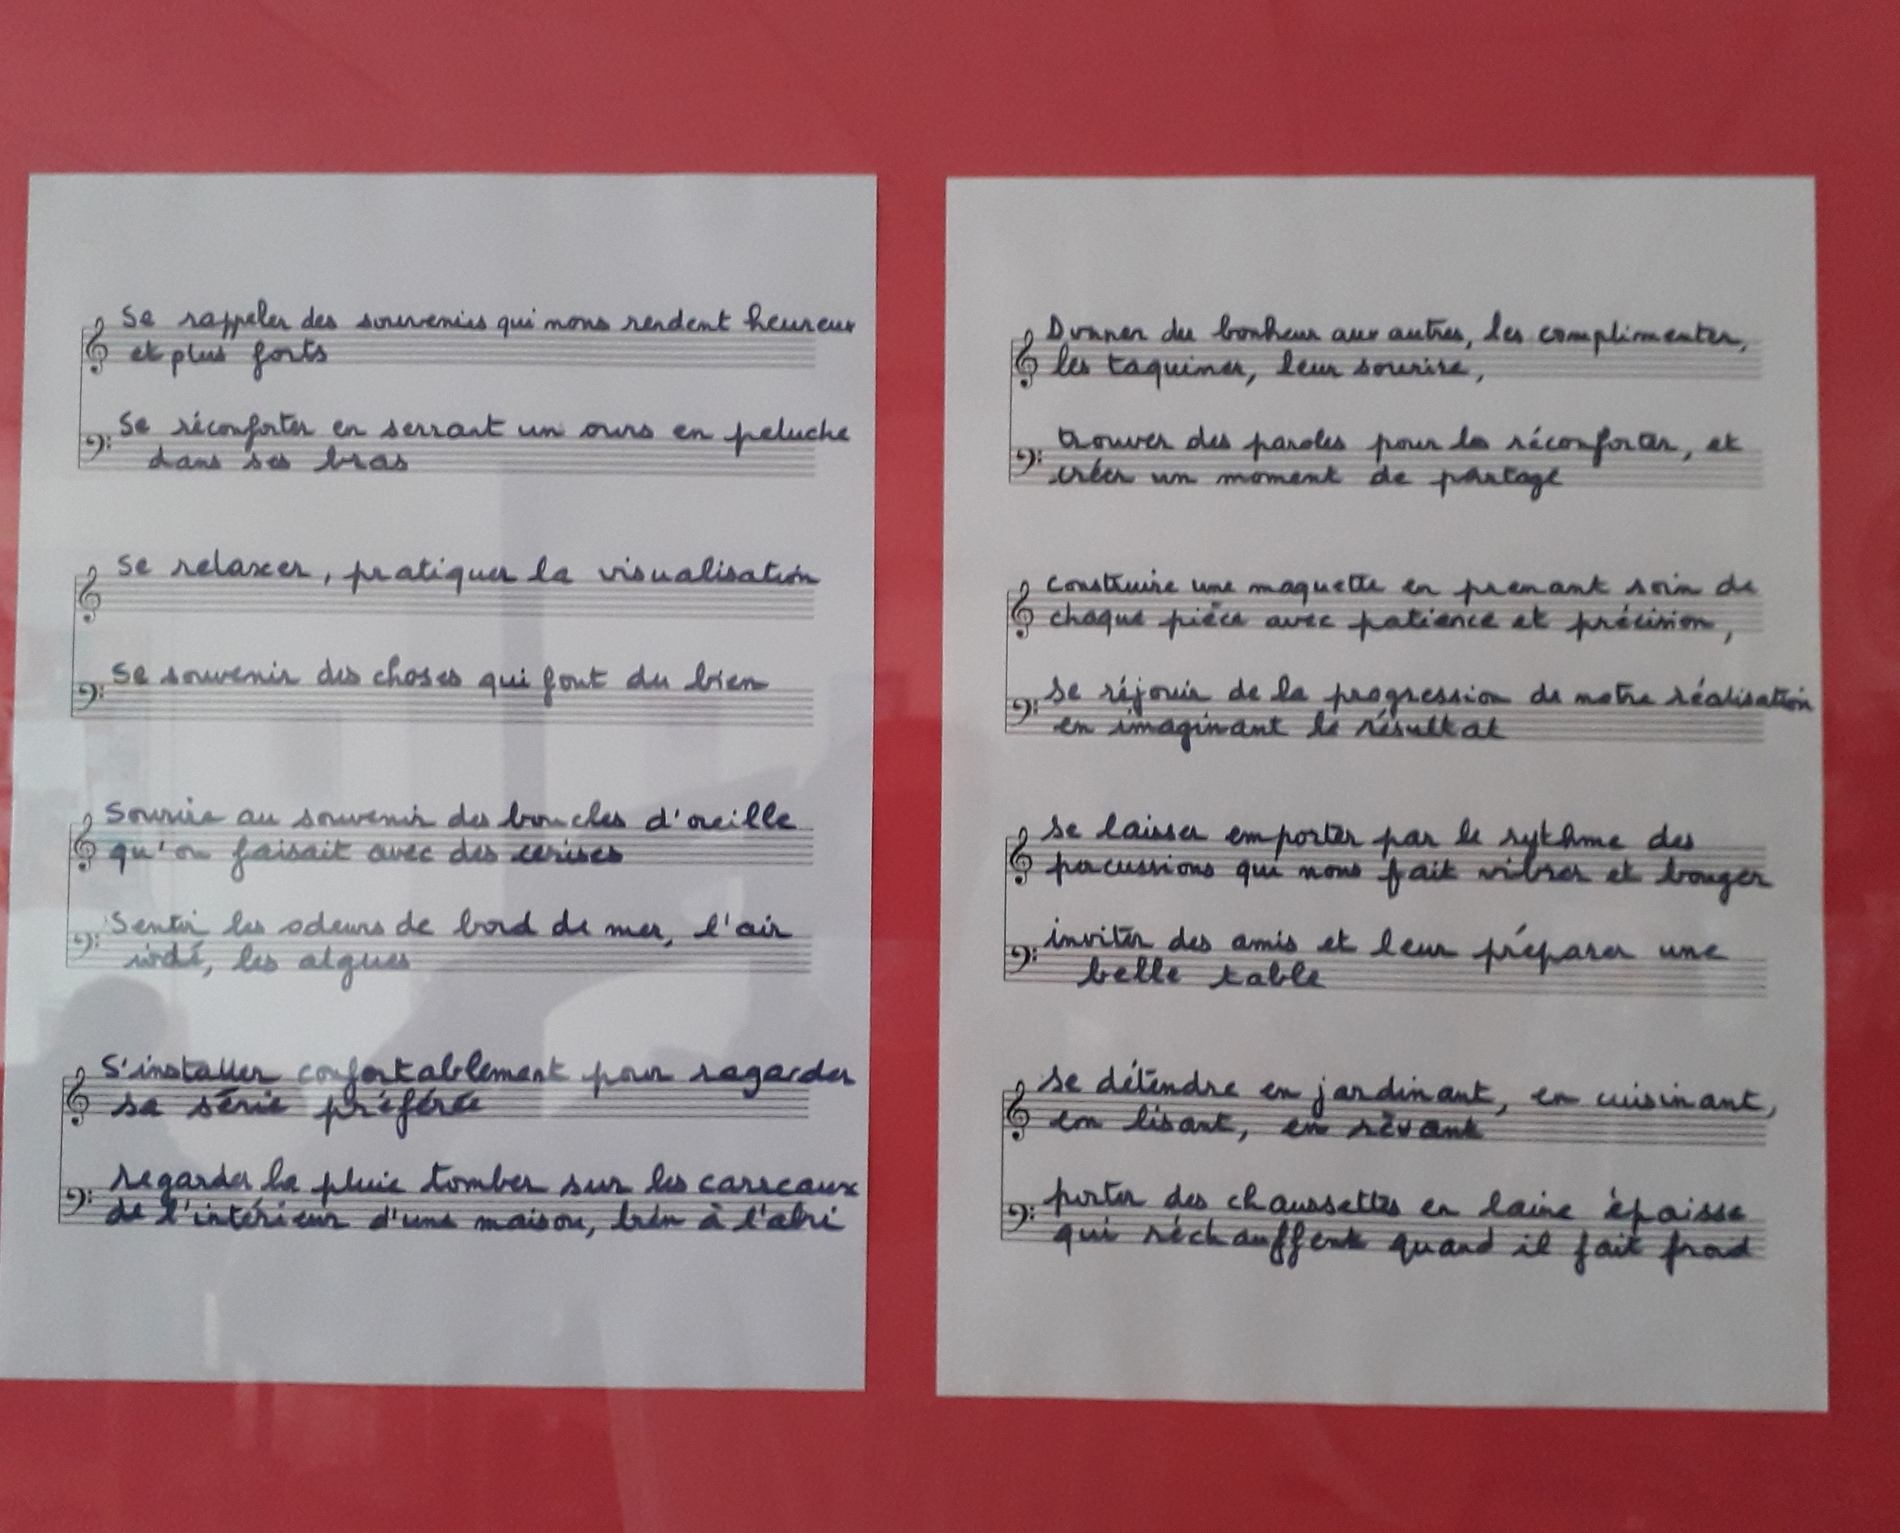 se rappeler des souvenirs qui nous rendent heureux
et plus forts
se réconforter en serrant un ours en peluche
dans ses bras
se relaxer, pratiquer la visualisation
se souvenir des choses qui font du bien
Sourire au souvenir des boucles d'oreille
qu'on faisait avec des cerises
Sentir les odeurs de bord de mer, l'air
iodé, les algues
S'installer confortablement pour regarder
sa série préférée
regarder la pluie tomber sur les carreaux
de l'intérieur d'une maison, bien à l'abri
Donner du bonheur aux autres, les complimenter,
les taquiner, leur sourire,
trouver des paroles pour les réconforter, et
créer un moment de partage
construire une maquette en prenant soin de
chaque pièce avec patience et précision,
se réjouir de la progression de notre réalisation
en imaginant le résultat
se laisser emporter par le rythme des
percussions qui nous fait vibrer et bouger
inviter des amis et leur préparer une
belle table
se détendre en jardinant, en cuisinant,
en lisant, en rêvant
porter des chaussettes en laine épaisse
qui réchauffent quand il fait froid